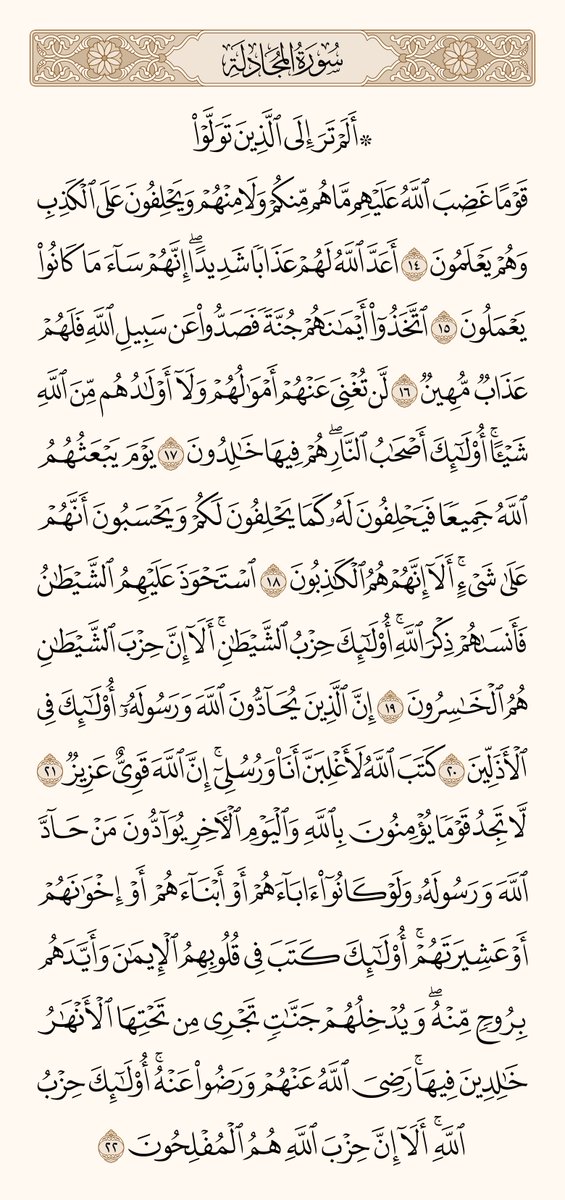 سُورَةُ المُجَادلَة
۞ أَلَمۡ تَرَ إِلَى ٱلَّذِينَ تَوَلَّوۡاْ
قَوۡمًا غَضِبَ ٱللَّهُ عَلَيۡهِم مَّا هُم مِّنكُمۡ وَلَا مِنۡهُمۡ وَيَحۡلِفُونَ عَلَى ٱلۡكَذِبِ
وَهُمۡ يَعۡلَمُونَ ١٤ أَعَدَّ ٱللَّهُ لَهُمۡ عَذَابٗا شَدِيدًاۖ إِنَّهُمۡ سَآءَ مَا كَانُواْ
يَعۡمَلُونَ ١٥ ٱتَّخَذُوٓاْ أَيۡمَٰنَهُمۡ جُنَّةٗ فَصَدُّواْ عَن سَبِيلِ ٱللَّهِ فَلَهُمۡ
عَذَابٞ مُّهِينٞ ١٦ لَّن تُغۡنِيَ عَنۡهُمۡ أَمۡوَٰلُهُمۡ وَلَآ أَوۡلَٰدُهُم مِّنَ ٱللَّهِ
شَيۡـًٔاۚ أُوْلَٰٓئِكَ أَصۡحَٰبُ ٱلنَّارِۖ هُمۡ فِيهَا خَٰلِدُونَ ١٧ يَوۡمَ يَبۡعَثُهُمُ
ٱللَّهُ جَمِيعٗا فَيَحۡلِفُونَ لَهُۥ كَمَا يَحۡلِفُونَ لَكُمۡ وَيَحۡسَبُونَ أَنَّهُمۡ
عَلَىٰ شَيۡءٍۚ أَلَآ إِنَّهُمۡ هُمُ ٱلۡكَٰذِبُونَ ١٨ ٱسۡتَحۡوَذَ عَلَيۡهِمُ ٱلشَّيۡطَٰنُ
فَأَنسَىٰهُمۡ ذِكۡرَ ٱللَّهِۚ أُوْلَٰٓئِكَ حِزۡبُ ٱلشَّيۡطَٰنِۚ أَلَآ إِنَّ حِزۡبَ ٱلشَّيۡطَٰنِ
هُمُ ٱلۡخَٰسِرُونَ ١٩ إِنَّ ٱلَّذِينَ يُحَآدُّونَ ٱللَّهَ وَرَسُولَهُۥٓ أُوْلَٰٓئِكَ فِي
ٱلۡأَذَلِّينَ ٢٠ كَتَبَ ٱللَّهُ لَأَغۡلِبَنَّ أَنَا۠ وَرُسُلِيٓۚ إِنَّ ٱللَّهَ قَوِيٌّ عَزِيزٞ ٢١
لَّا تَجِدُ قَوۡمٗا يُؤۡمِنُونَ بِٱللَّهِ وَٱلۡيَوۡمِ ٱلۡأٓخِرِ يُوَآدُّونَ مَنۡ حَآدَّ
ٱللَّهَ وَرَسُولَهُۥ وَلَوۡ كَانُوٓاْ ءَابَآءَهُمۡ أَوۡ أَبۡنَآءَهُمۡ أَوۡ إِخۡوَٰنَهُمۡ
أَوۡ عَشِيرَتَهُمۡۚ أُوْلَٰٓئِكَ كَتَبَ فِي قُلُوبِهِمُ ٱلۡإِيمَٰنَ وَأَيَّدَهُم
بِرُوحٖ مِّنۡهُۖ وَيُدۡخِلُهُمۡ جَنَّٰتٖ تَجۡرِي مِن تَحۡتِهَا ٱلۡأَنۡهَٰرُ
خَٰلِدِينَ فِيهَاۚ رَضِيَ ٱللَّهُ عَنۡهُمۡ وَرَضُواْ عَنۡهُۚ أُوْلَٰٓئِكَ حِزۡبُ
ٱللَّهِۚ أَلَآ إِنَّ حِزۡبَ ٱللَّهِ هُمُ ٱلۡمُفۡلِحُونَ ٢٢